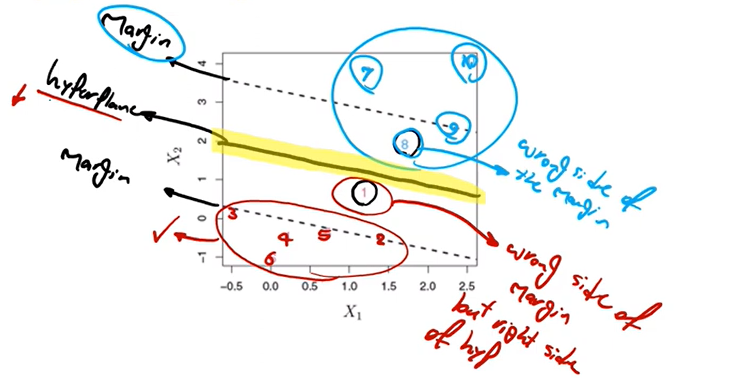 Margin
hyperplane
Margin
4
3
2
1
0
-1
X2
-0.5 0.0 0.5 1.0 1.5 2.0 2.5
X1
7
10
9
8
1
3
4
5
2
6
wrong side of
the margin
wrong side of
margin
but right side
of hyp